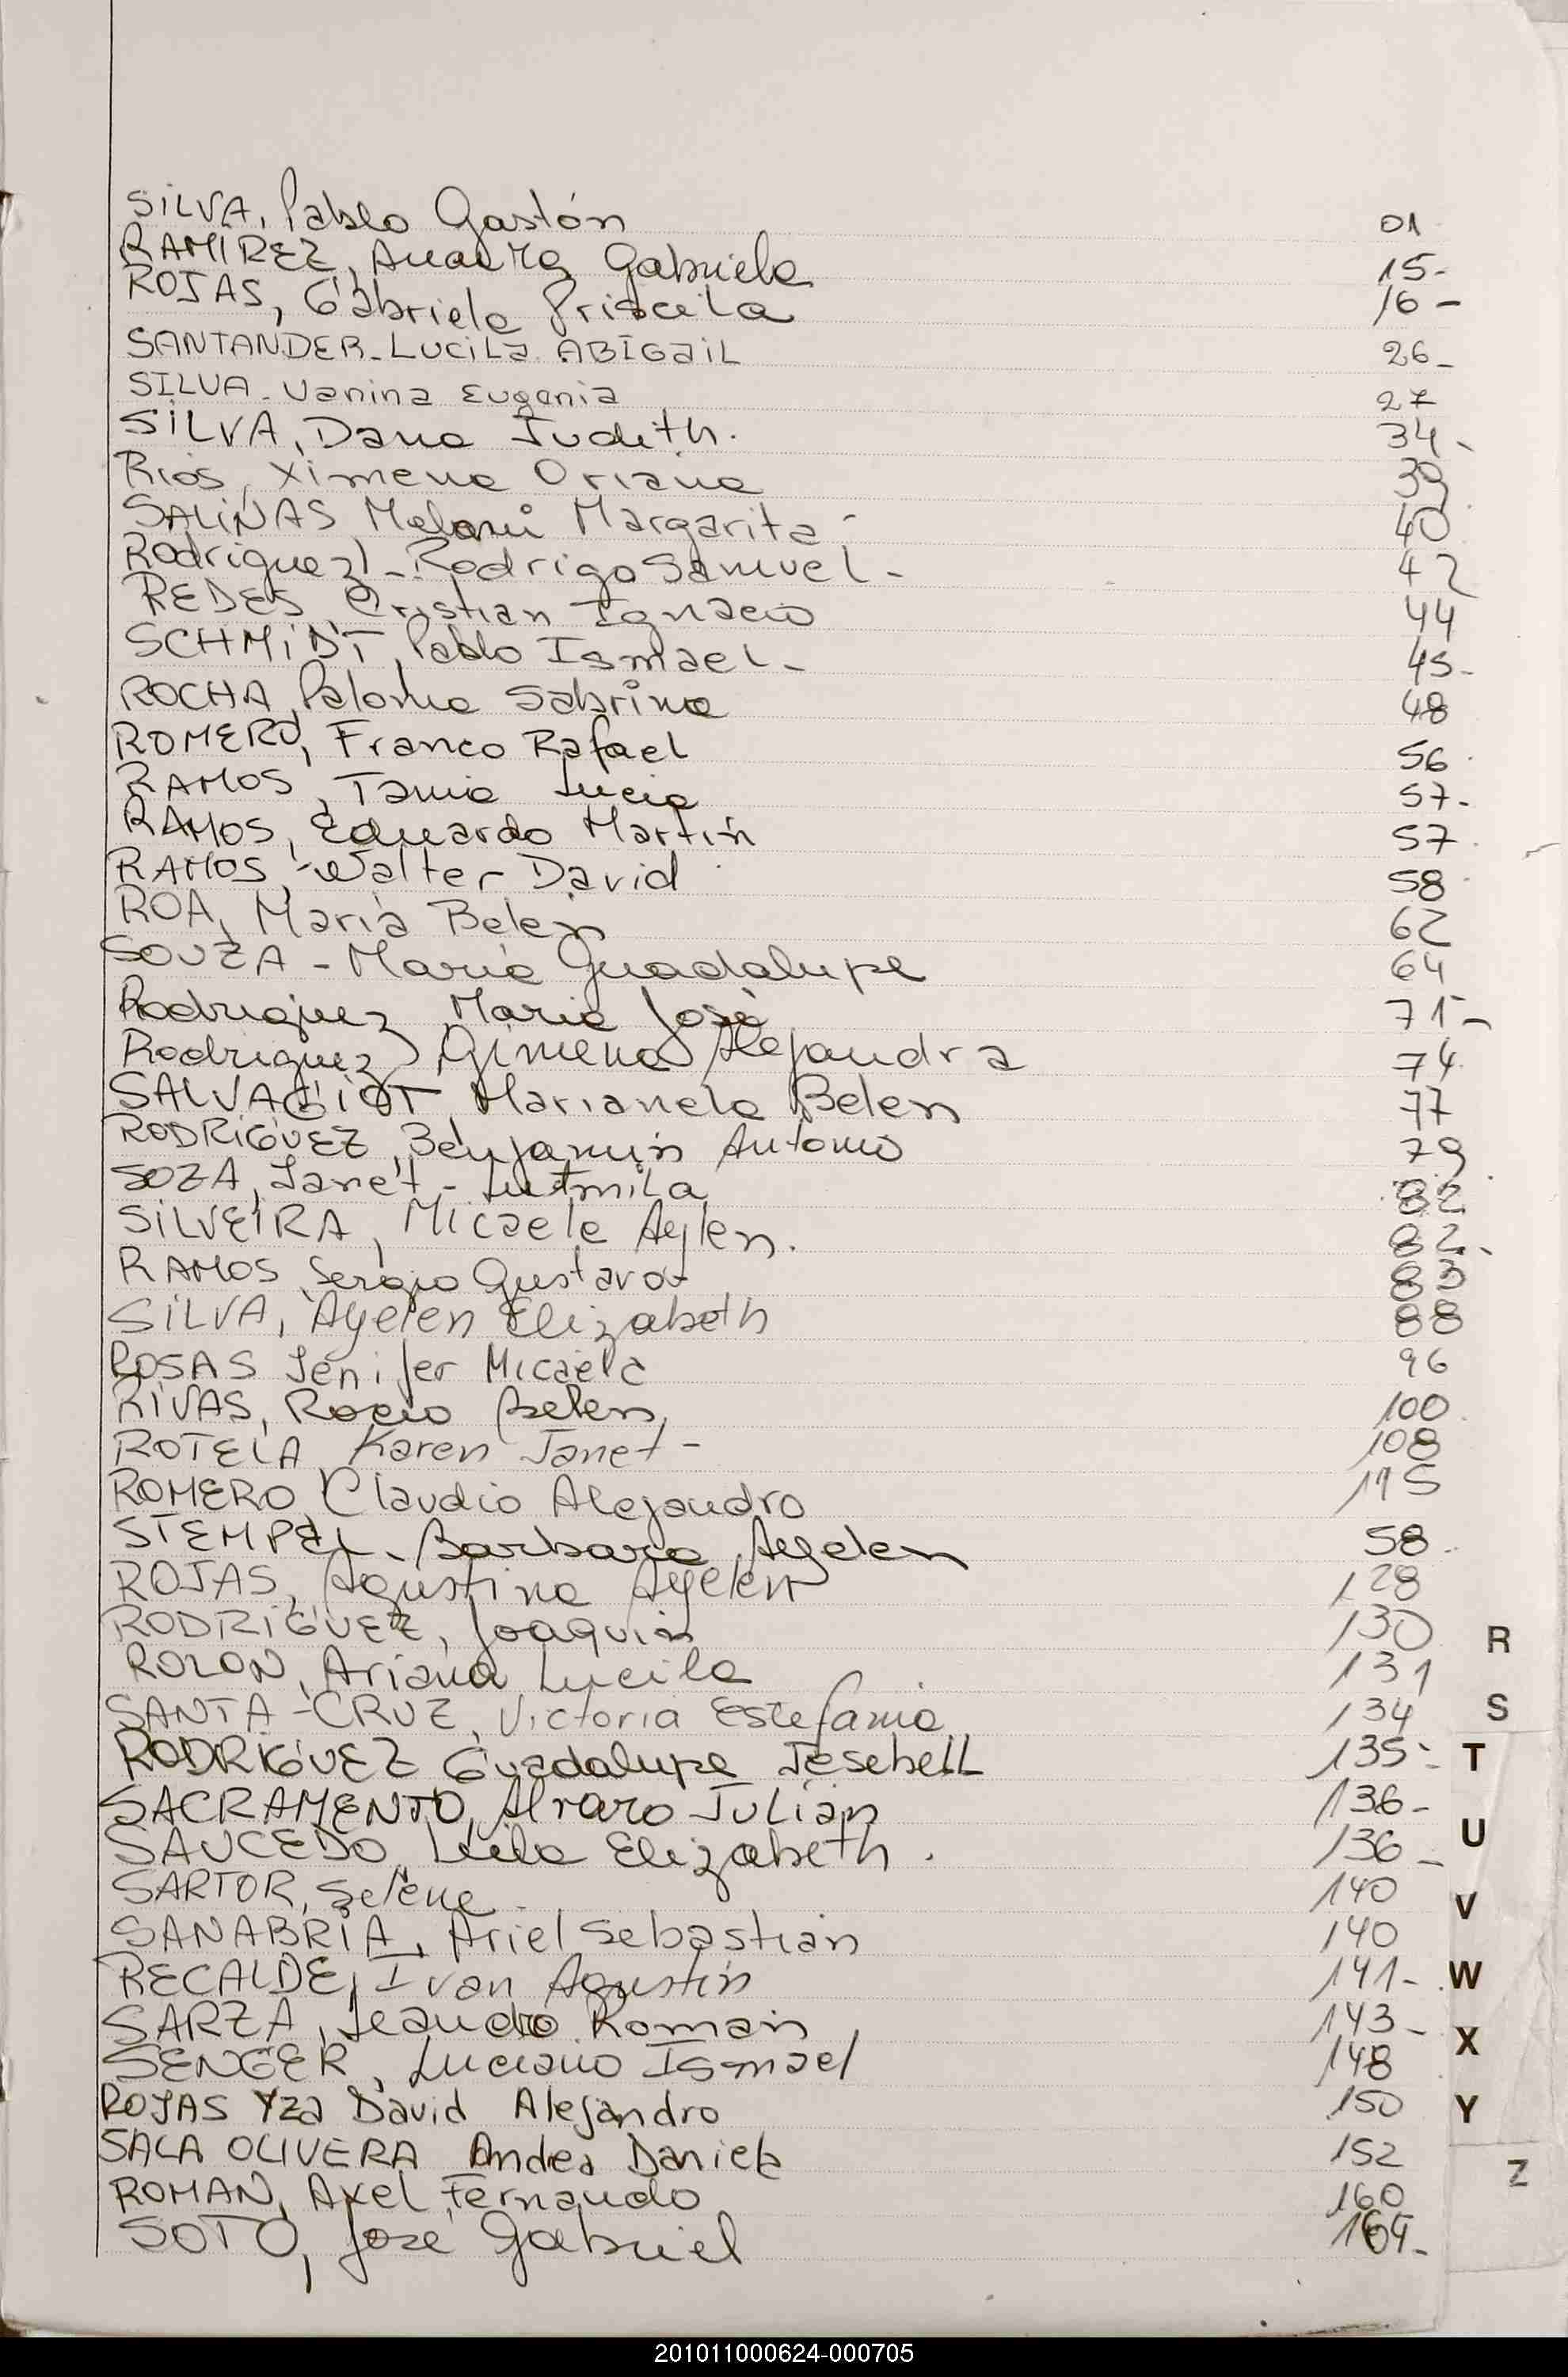 SILVA, Pablo Gastón 01
RAMIREZ, Gabriela 15-
ROJAS, Gabriela Priscila 16-
SANTANDER-LUCILA ABIGAIL 26-
SILVA-Vanina Eugenia 27
SILVA, Dana Judith. 34-
Rios, Ximena Oriana 39
SALINAS Melani Margarita- 40
Rodriguez-Rodrigo Samuel- 42
REDES Cristian Ignacio 44
SCHMIDT, Pablo Ismael- 45-
ROCHA, Paloma Sabrina 48
ROMERO, Franco Rafael 56
RAMOS, Tania Lucia 57-
RAMOS, Eduardo Martin 57
RAMOS, Walter David 58
ROA, Maria Belen 62
SOUZA-Maria Guadalupe 64
Rodriguez Maria José 71-
Rodriguez, Gimena Alejandra 74
SALVAGIOT, Marianela Belen 77
RODRIGUEZ, Benjamin Antonio 79
SOZA, Janet-Ludmila 82
SILVEIRA, Micaela Aylen. 82-
RAMOS Sergio Gustavo- 83
SILVA, Ayelen Elizabeth 88
ROSAS Jenifer Micaela 96
RIVAS, Rocio Belen 100
ROTELA Karen Janet- 108
ROMERO Claudio Alejandro 115
STEMPEL-Barbara Ayelen 58
ROJAS, Agustina Ayelen 128
RODRIGUEZ, Joaquin 130
ROLON, Ariana Lucila 131
R
SANTA-CRUZ, Victoria Estefania 134
S
RODRIGUEZ Guadalupe Jesebell 135-
T
SACRAMENTO, Alvaro Julián 136-
SAUCEDO Leila Elizabeth. 136-
U
SARTOR, Selene 140
V
SANABRIA, Ariel Sebastian 140
RECALDE, Ivan Agustin 141-
W
SARZA, Leandro Roman 143-
X
SENGER, Luciano Ismael 148
ROJAS Yza David Alejandro 150
Y
SALA OLIVERA Andea Daniela 152
Z
ROMAN, Axel Fernando 160
SOTO, José Gabriel
201011000624-000705